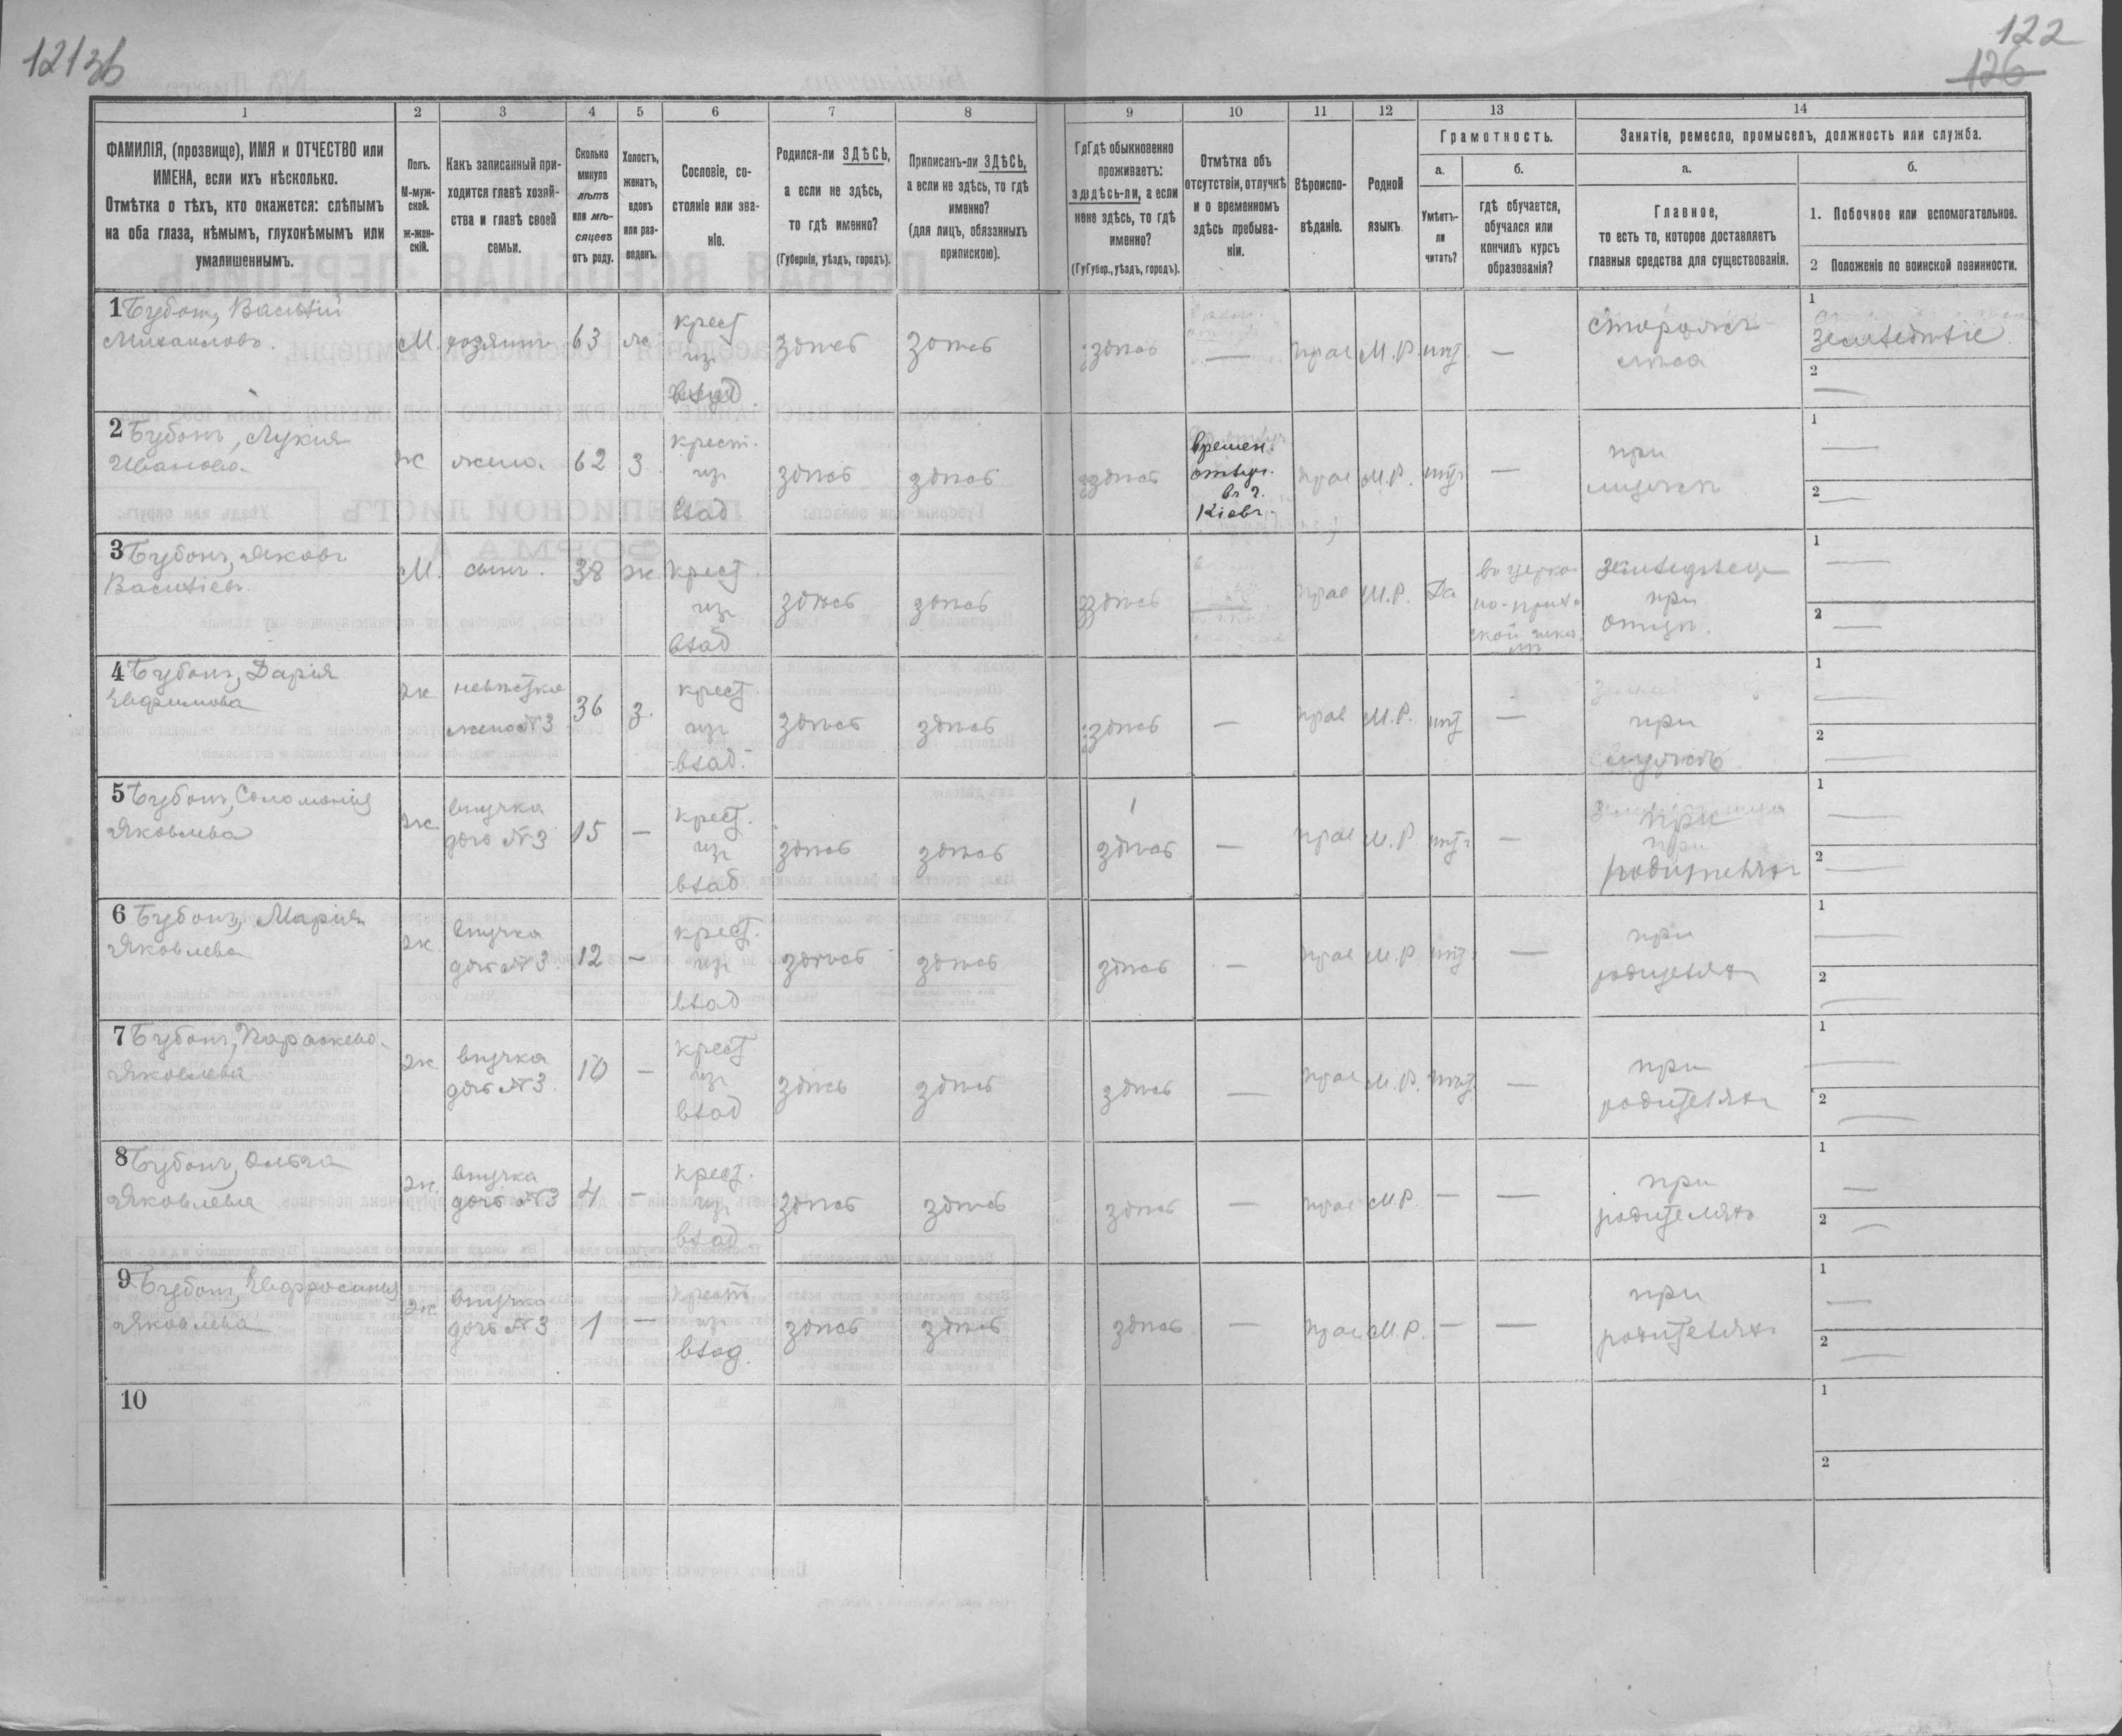 121об
122
126
1
2
3
4
5
6
7
8
9
10
11
12
13
14
ФАМИЛІЯ, (прозвище), ИМЯ и ОТЧЕСТВО или
ИМЕНА, если ихъ нѣсколько.
Отмѣтка о тѣхъ, кто окажется: слѣпымъ
на оба глаза, нѣмымъ, глухонѣмымъ или
умалишеннымъ.
Полъ.
М-муж-
ской.
ж-жен-
скій.
Какъ записанный при-
ходится главѣ хозяй-
ства и главѣ своей
семьи.
Сколько
минуло
лѣтъ
или мѣ-
сяцевъ
отъ роду.
Холостъ,
женатъ,
вдовъ
или раз-
веденъ.
Сословіе, со-
стояніе или зва-
ніе.
Родился-ли ЗДѢСЬ,
а если не здѣсь,
то гдѣ именно?
(Губернія, уѣздъ, городъ).
Приписанъ-ли ЗДѢСЬ,
а если не здѣсь, то гдѣ
именно?
(для лицъ, обязанныхъ
припискою).
Гдѣ обыкновенно
проживаетъ:
здѣсь-ли, а если
не здѣсь, то гдѣ
именно?
(Губер., уѣздъ, городъ).
Отмѣтка объ
отсутствіи, отлучкѣ
и о временномъ
здѣсь пребыва-
ніи.
Вѣроиспо-
вѣданіе.
Родной
языкъ.
Грамотность.
а.
Умѣетъ-
ли
читать?
б.
гдѣ обучается,
обучался или
кончилъ курсъ
образованія?
Занятіе, ремесло, промыселъ, должность или служба.
а.
Главное,
то есть то, которое доставляетъ
главныя средства для существованія.
б.
1. Побочное или вспомогательное.
2 Положеніе по воинской повинности.
1 Бубонъ, Василій
Михаиловъ.
М. хозяинъ 63 ж крест
из
влад
здѣсь здѣсь здѣсь — прав М.Р. нѣт — сторожъ
лѣса
1 земледѣліе
2 —
2 Бубонъ, Лукия
Иванова
ж жена 62 з. крест.
из
влад
здѣсь здѣсь здѣсь
времен.
отлуч.
въ г.
Кіевъ.
прав М.Р. нѣт — при
мужѣ
1 —
2 —
3 Бубонъ, Яковъ
Василіевъ.
М. сынъ. 38 ж. крест.
из
влад
здѣсь здѣсь здѣсь — прав М.Р. Да
въ церко-
но-прих-
ской шко-
лѣ
земледѣлец
при
отцѣ.
1 —
2 —
4 Бубонъ, Дарія
Евфимова
ж невѣстка
жена №3 36 з. крест.
из
влад.
здѣсь здѣсь здѣсь — прав М.Р. нѣт — при
мужѣ
1 —
2 —
5 Бубонъ, Соломонія
Яковлева
ж внучка
дочь №3 15 — крест.
из
влад.
здѣсь здѣсь здѣсь — прав М.Р нѣт — при
родителях
1 —
2 —
6 Бубонъ, Марія
Яковлева
ж внучка
дочь №3 12 — крест.
из
влад
здѣсь здѣсь здѣсь — прав М.Р нѣт — при
родителях
1 —
2 —
7 Бубонъ, Параскева
Яковлева
ж внучка
дочь №3. 10 — крест
из
влад
здѣсь здѣсь здѣсь — прав М.Р. нѣт — при
родителях
1 —
2 —
8 Бубонъ, Ольга
Яковлева
ж. внучка
дочь №3 4 — крест.
из
влад
здѣсь здѣсь здѣсь — прав М.Р. — — при
родителях
1 —
2 —
9 Бубонъ, Евфросинія
Яковлева
ж внучка
дочь №3 1 — крест
из
влад.
здѣсь здѣсь здѣсь — прав М.Р. — — при
родителях
1 —
2 —
10
1
2